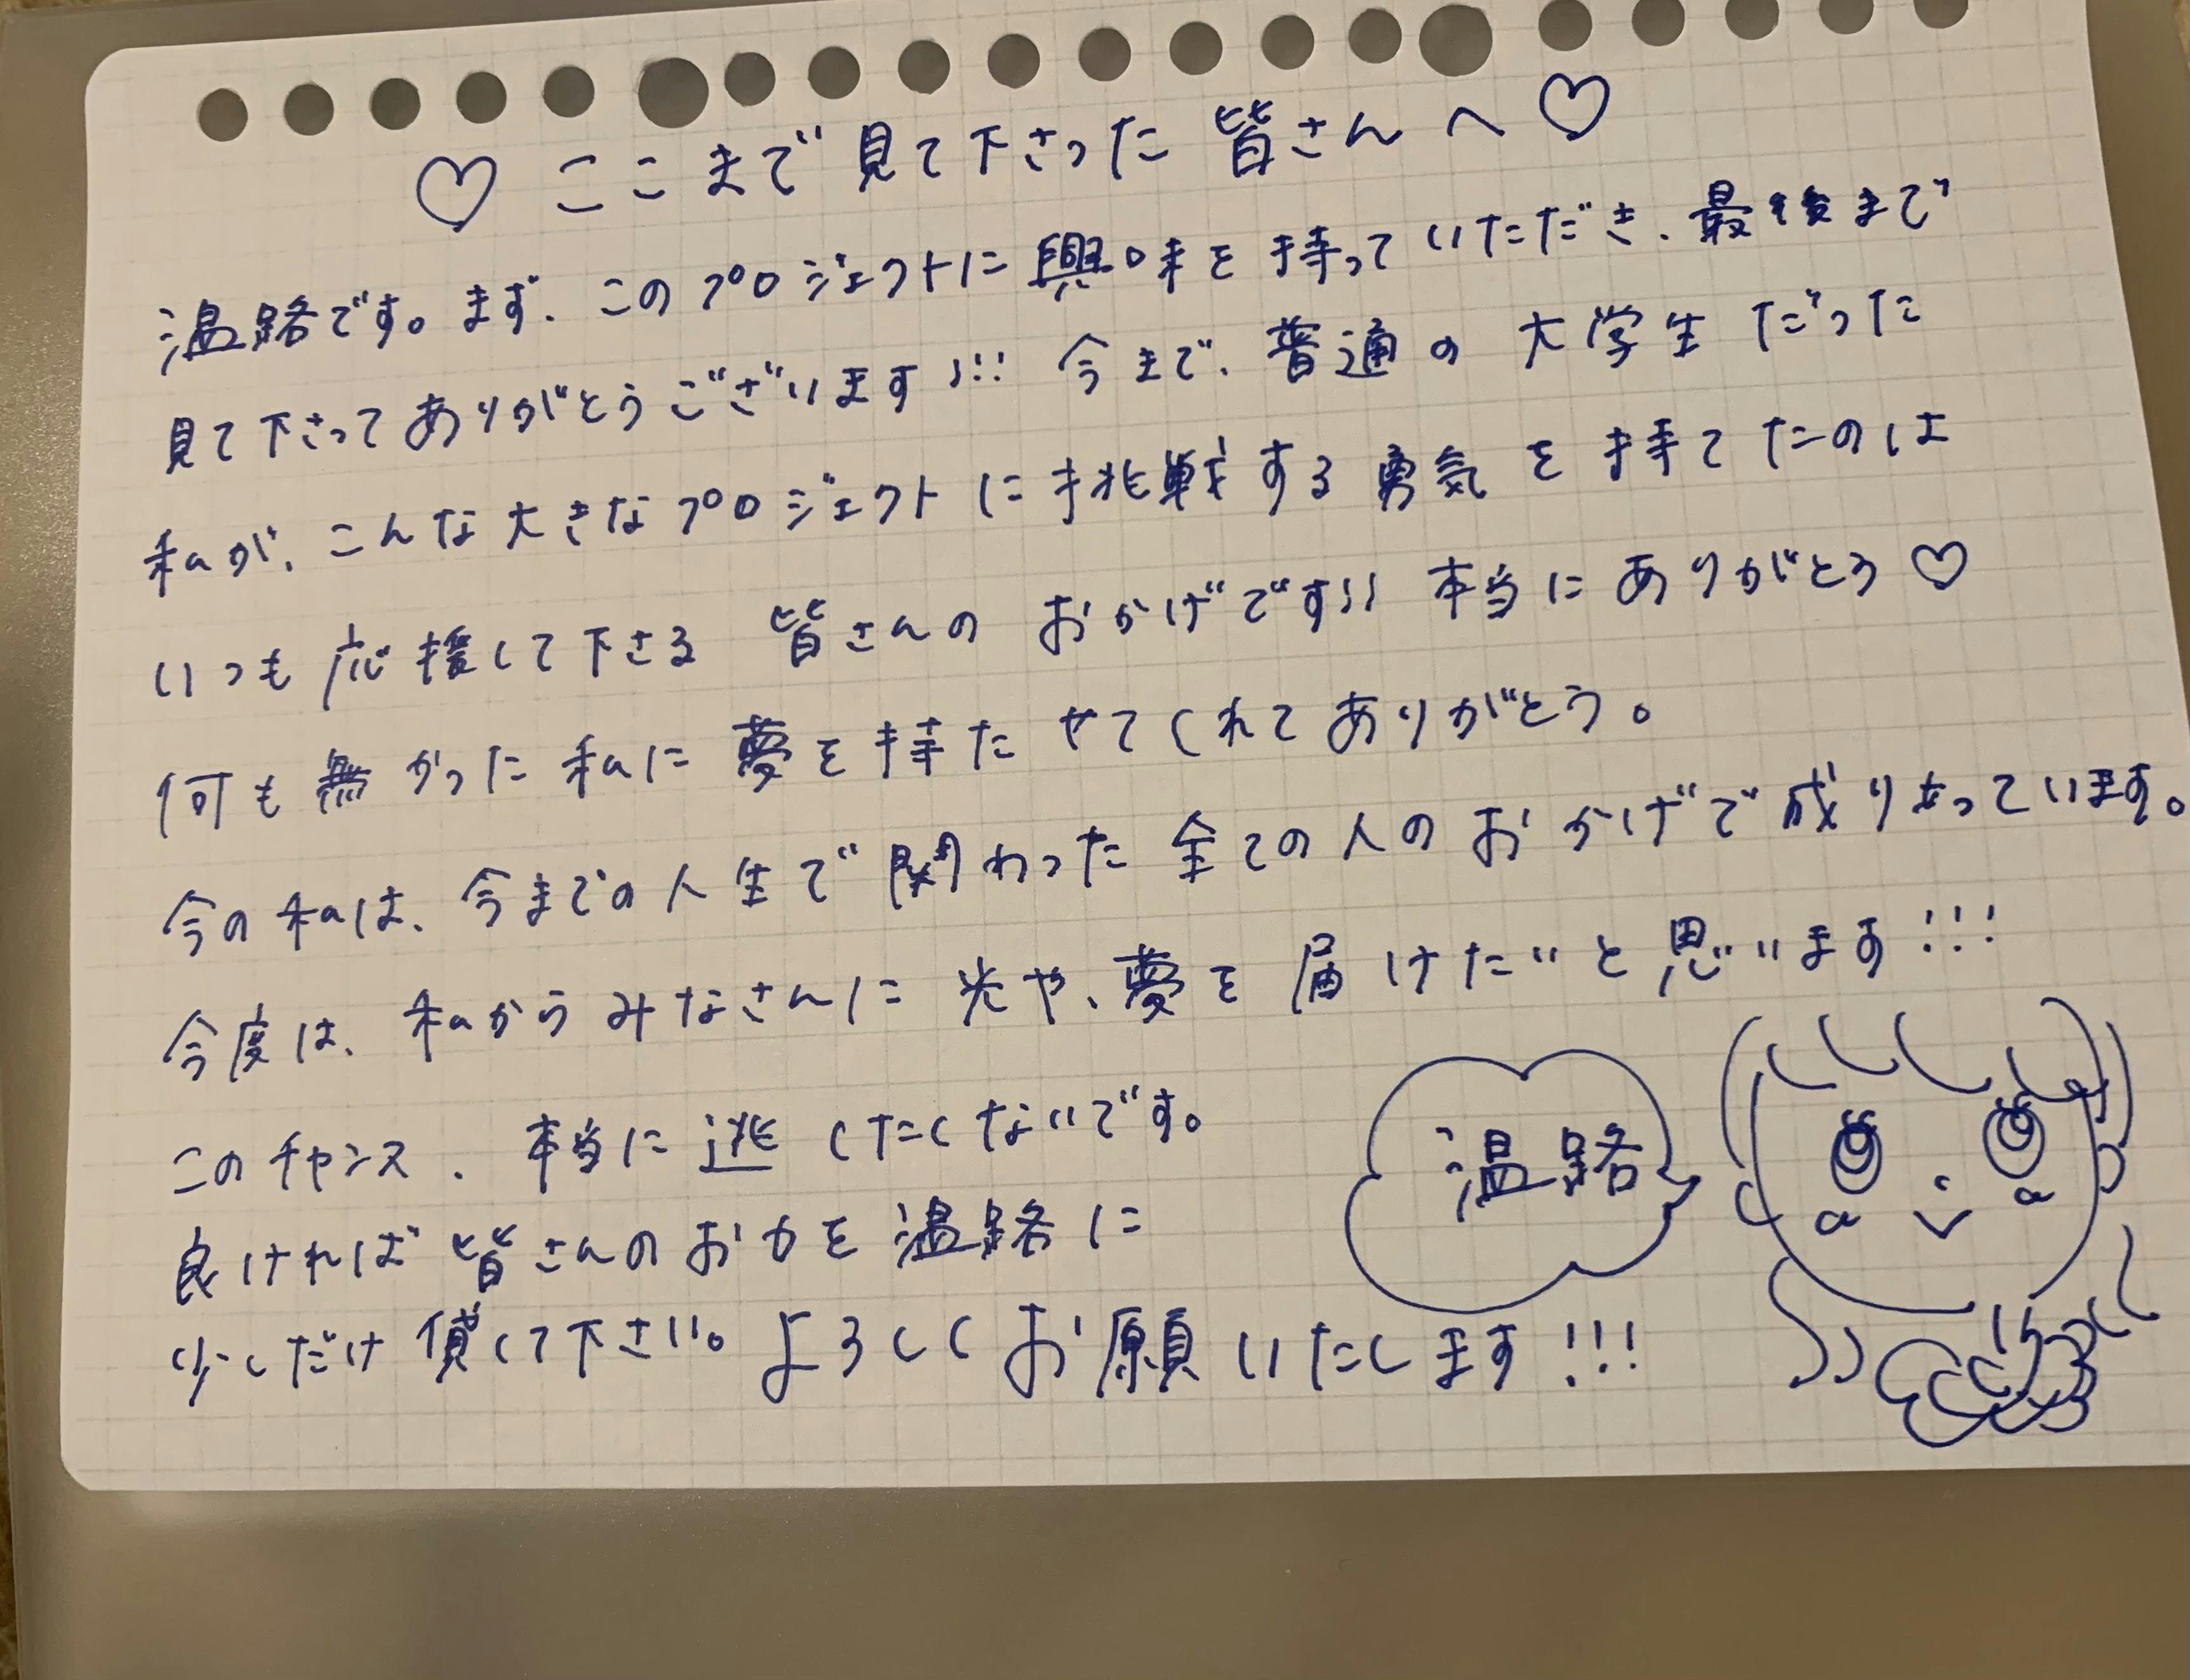 ♡ ここまで見て下さった皆さんへ♡
温路です。まず、このプロジェクトに興味を持っていただき、最後まで
見て下さってありがとうございます!!! 今まで、普通の大学生だった
私が、こんな大きなプロジェクトに挑戦する勇気を持てたのは
いつも応援して下さる 皆さんの おかげです!! 本当に ありがとう♡
何も無かった私に夢を持たせてくれてありがとう。
今の私は、今までの人生で関わった全ての人のおかげで成り立っています。
今度は、私からみなさんに光や、夢を届けたいと思います!!!
このチャンス、本当に逃したくないです。
良ければ皆さんのお力を温路に
少しだけ貸して下さい。よろしくお願いいたします!!!
温路